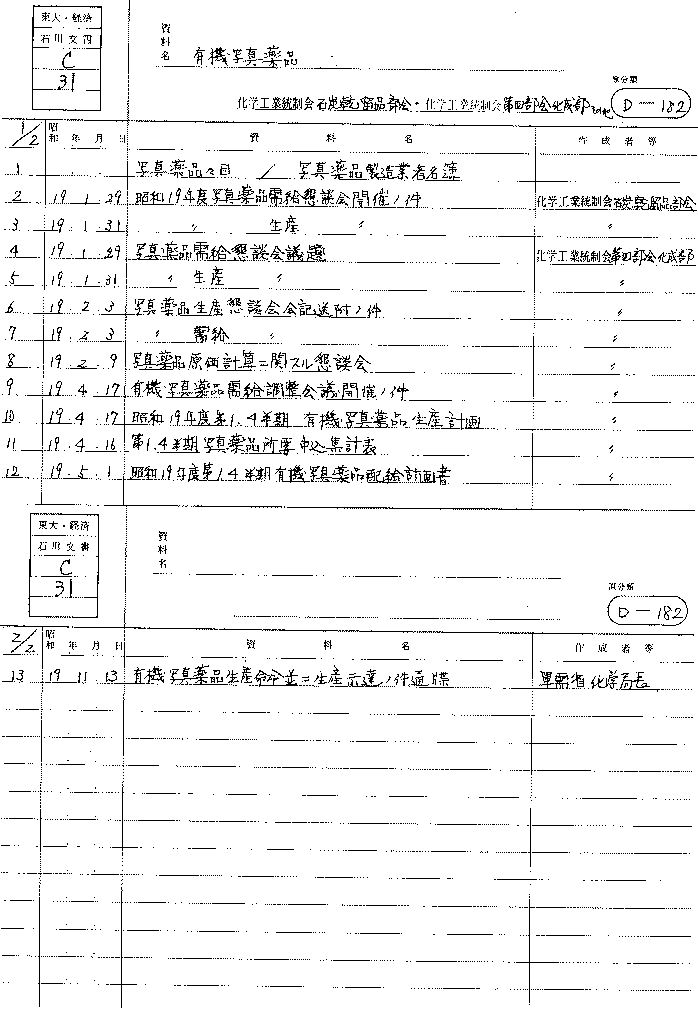 東大・経済
石川文書
C
31
資料名 有機写真薬品
原分類
化学工業統制会石炭乾溜品部会・化学工業統制会第四部会化成部 その他 D-182
1/2 昭和 年 月 日 資 料 名 作 成 者 等
1 写真薬品々目 / 写真薬品製造業者名簿
2 19 1 29 昭和19年度写真薬品需給懇談会開催ノ件 化学工業統制会石炭乾溜品部会
3 19 1 31 〃 生産 〃 〃
4 19 1 29 写真薬品需給懇談会議題 化学工業統制会第四部会化成部
5 19 1 31 〃 生産 〃 〃
6 19 2 3 写真薬品生産懇談会会記送附ノ件 〃
7 19 2 3 〃 需給 〃 〃
8 19 2 9 写真薬品原価計算ニ関スル懇談会 〃
9 19 4 17 有機写真薬品需給調整会議開催ノ件 〃
10 19 4 17 昭和19年度第1.4半期 有機写真薬品生産計画 〃
11 19 4 16 第1.4半期写真薬品所要申込集計表 〃
12 19 5 1 昭和19年度第1.4半期有機写真薬品配給計画書 〃
東大・経済
石川文書
C
31
資料名
原分類
D-182
2/2 昭和 年 月 日 資 料 名 作 成 者 等
13 19 11 13 有機写真薬品生産命令並ニ生産示達ノ件通牒 軍需省化学局長